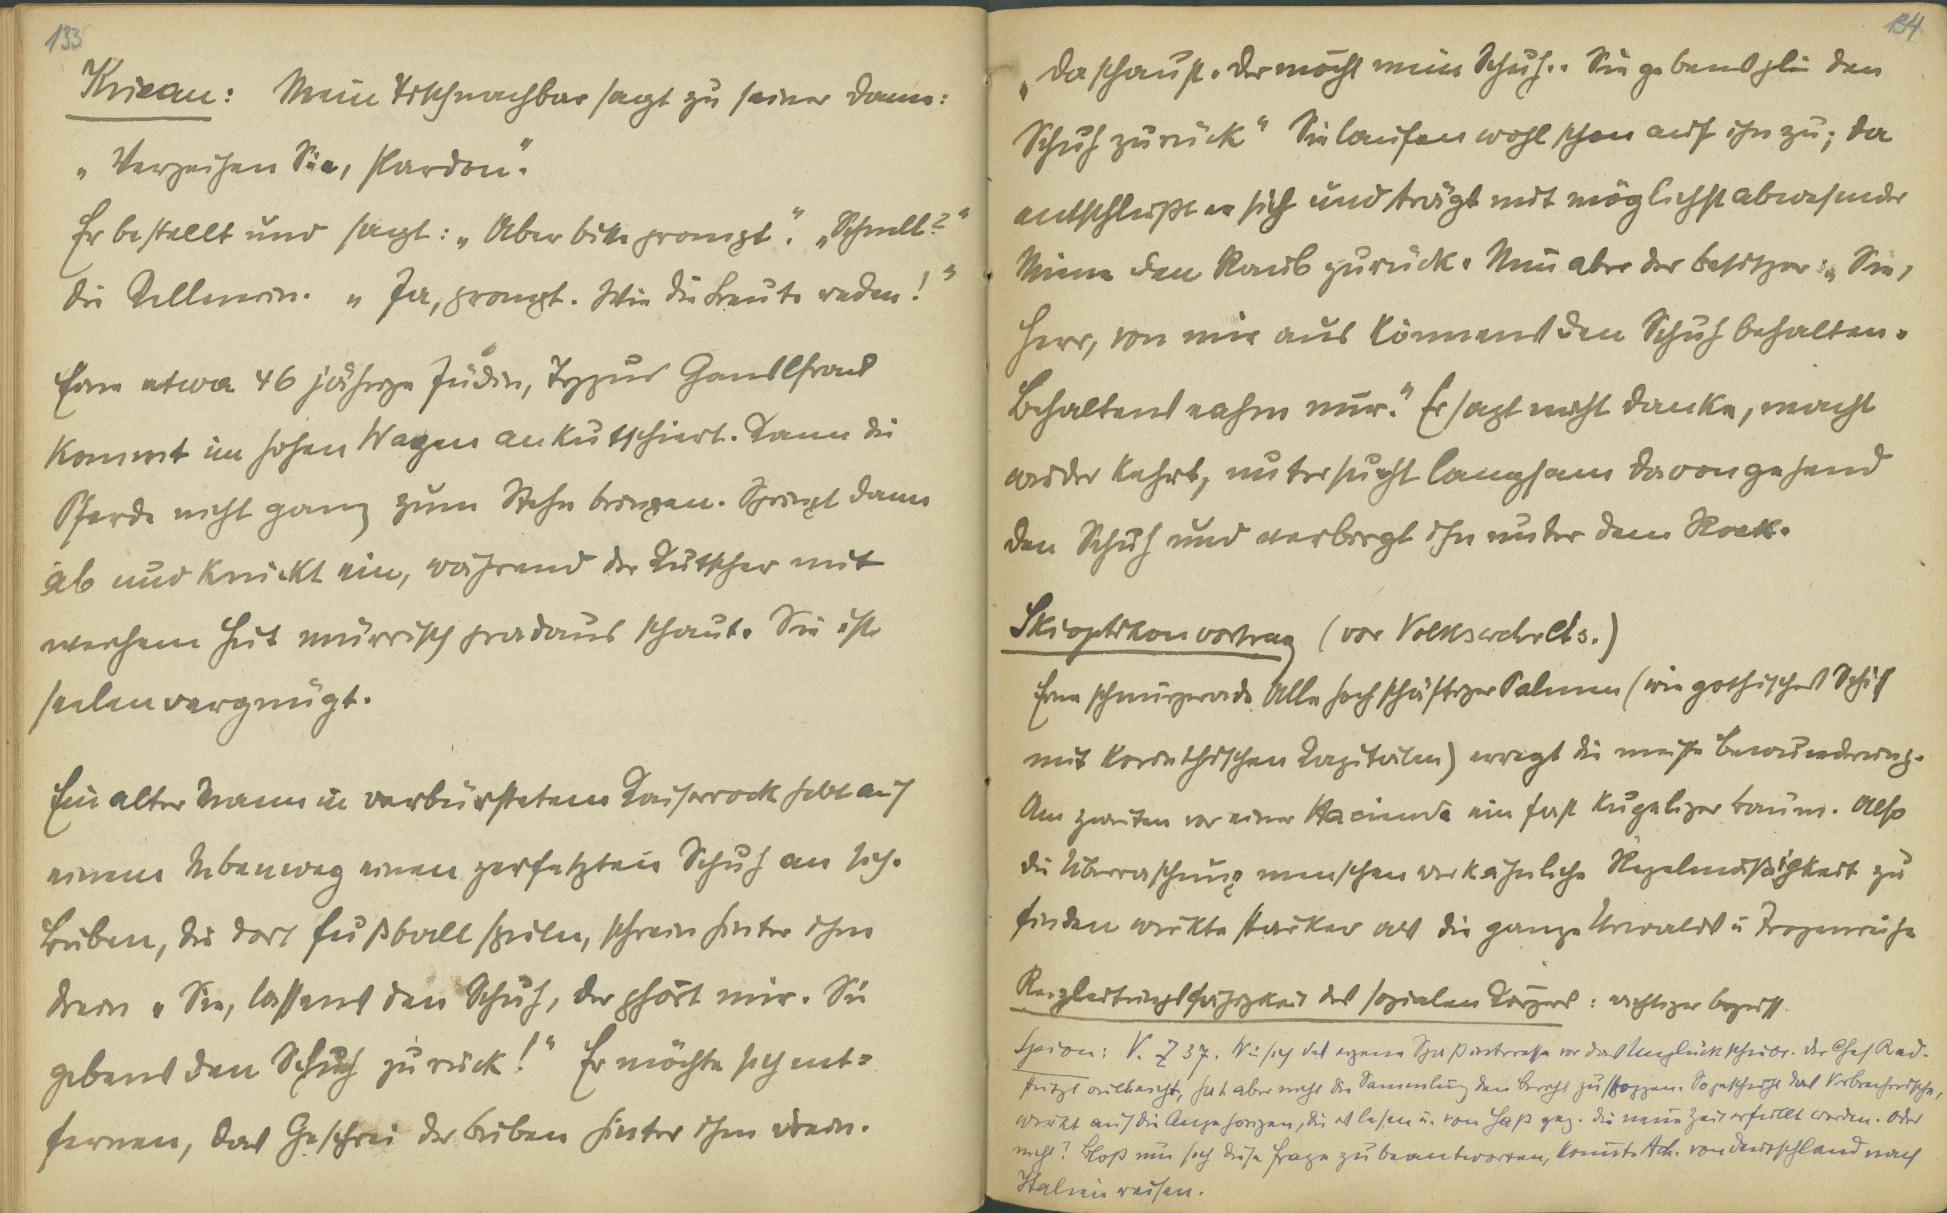 133
Krieau: Mein Tischnachbar sagt zu seiner Dame:
„Verzeihen Sie, Pardon".
Er bestellt und sagt: „Aber bitte prompt". „Schnell?"
die Kellnerin. „Ja, prompt. Wie die Leute reden!"
Eine etwa 46 jährige Jüdin, Typus Gansl
kommt im hohen Wagen ankutschiert. Kann die
Pferde nicht ganz zum Stehn bringen. Springt dann
ab und knickt ein, während der Kutscher mit
weichem Hut mürrisch gradaus schaut. Sie ist
seelenvergnügt.
Ein alter Mann in verbürstetem Kaiserrock hebt auf
einem Nebenweg einen zerfetzten Schuh an sich.
Buben, die dort Fußball spielen, schrein hinter ihm
drein „Sie, lassens den Schuh, der ghört mir. Sie
gebens den Schuh zurück!" Er möchte sich ent=
fernen, das Geschrei der Buben hinter ihm drein.
134
„Da schaust. Der möcht mein Schuh.. Sie gebens glei den
Schuh zurück" Sie laufen wohl schon auf ihn zu; da
entschließt er sich und trägt mit möglichst abwesender
Miene den Raub zurück. Nun aber der Besitzer: „Sie,
Herr, von mir aus könnens den Schuh behalten.
Behaltens eahm nur." Er sagt nicht danke, macht
wieder kehrt, untersucht langsam davongehend
den Schuh und verbirgt ihn unter dem Rock.
Skioptikonvortrag (vor
Eine schnurgerade Allee hochschäftiger Palmen (wie gothisches Schiff
mit korinthischen Kapitälen) erregt die meiste Bewunderung.
Am zweiten vor einer Hacienda ein fast kugeliger Baum. Also
die Überraschung menschenwerkähnliche Regelmäßigkeit zu
finden wirkte stärker als die ganze Urwalds u Tropenreihe
Reizleitungsfähigkeit des sozialen Körpers: wichtiger Begriff
Spion: V. Z 37. Wie sich das eigene Spaßinteresse vor das Unglück schiebt. Der Chef Red.
hat aber nicht die Sammlung den Bericht zu stoppen. So geschieht das Verbrecherische,
wirkt auf die Angehörigen, die es lesen u. von Haß geg. die neue Zeit erfüllt werden. Oder
nicht? Bloß um sich diese Frage zu beantworten, könnte Ach. von Deutschland nach
Italien reisen.